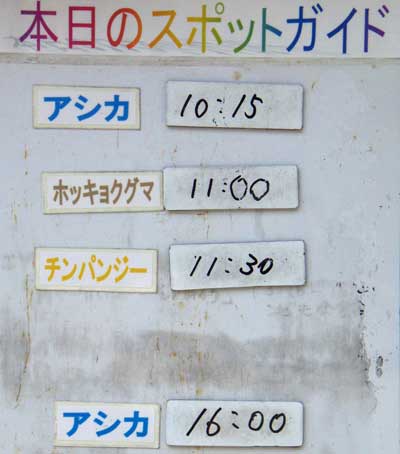 本日のスポットガイド
アシカ 10:15
ホッキョクグマ 11:00
チンパンジー 11:30
アシカ 16:00